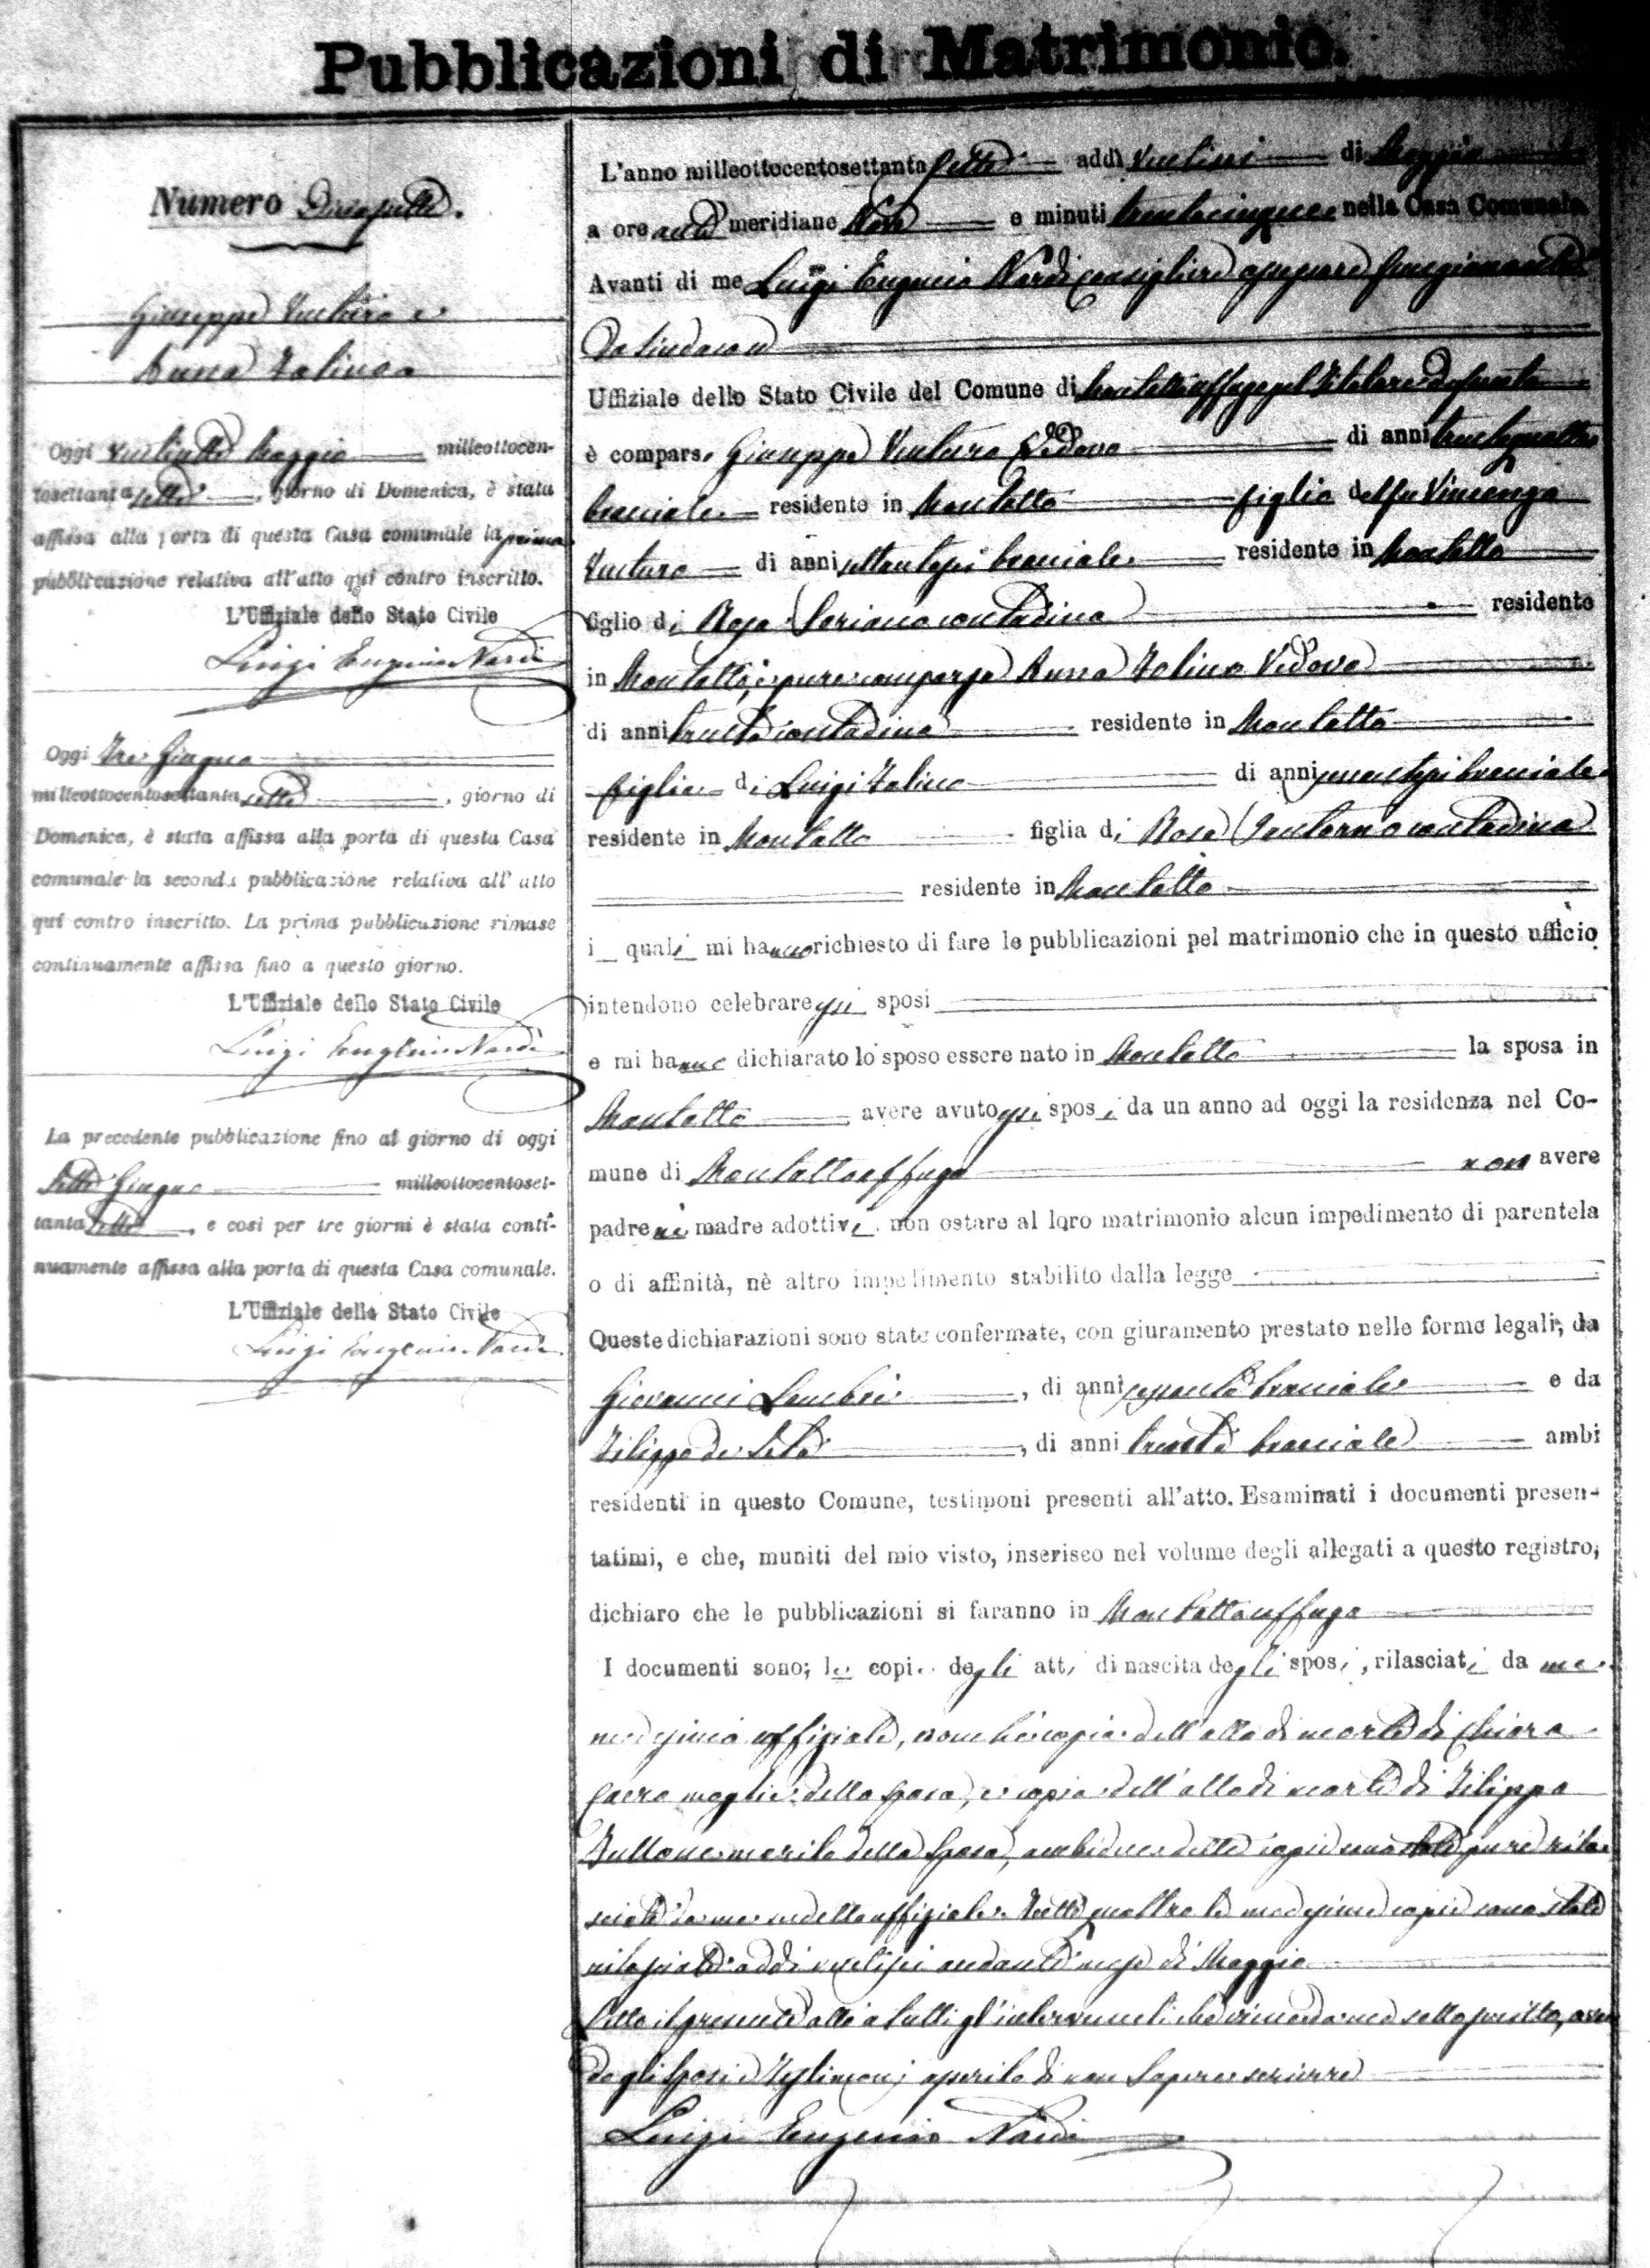 Pubblicazioni di Matrimonio.
Numero Diciasette.
Giuseppe Venturo e
Anna Folino
Oggi ventisette Maggio milleottocen-
tosettantasette, giorno di Domenica, è stata
affissa alla porta di questa Casa comunale la prima
pubblicazione relativa all'atto qui contro inscritto.
L'Uffiziale dello Stato Civile
Luigi Eugenio Nardi
Oggi Tre Giugno
milleottocentosettantasette, giorno di
Domenica, è stata affissa alla porta di questa Casa
comunale la seconda pubblicazione relativa all'atto
qui contro inscritto. La prima pubblicazione rimase
continuamente affissa fino a questo giorno.
L'Uffiziale dello Stato Civile
Luigi Eugenio Nardi
La precedente pubblicazione fino al giorno di oggi
sette Giugno milleottocentoset-
tantasette, e così per tre giorni è stata conti-
nuamente affissa alla porta di questa Casa comunale.
L'Uffiziale dello Stato Civile
Luigi Eugenio Nardi
L'anno milleottocentosettantasette addì ventisei di Maggio
a ore anti meridiane Nove e minuti trentacinque nella Casa Comunale
Avanti di me Luigi Eugenio Nardi Consigliere funzionante
Da Sindaco
Uffiziale dello Stato Civile del Comune di Montaltouffugo pel Titolare
è comparso Giuseppe Venturo Vedovo di anni trentaquattro
bracciale residente in Montalto figlio del fu Vincenzo
Venturo di anni settantasei bracciale residente in Montalto
figlio di Rosa Soriano contadina residente
in Montalto, è pure comparsa Anna Folino Vedova
di anni trenta contadina residente in Montalto
figlia di Luigi Folino di anni bracciale
residente in Montalto figlia di Rosa contadina
residente in Montalto
i quali mi hanno richiesto di fare le pubblicazioni pel matrimonio che in questo ufficio
intendono celebrare essi sposi
e mi hanno dichiarato lo sposo essere nato in Montalto la sposa in
Montalto avere avuto essi sposi da un anno ad oggi la residenza nel Co-
mune di Montaltouffugo non avere
padre nè madre adottivi non ostare al loro matrimonio alcun impedimento di parentela
o di affinità, nè altro impedimento stabilito dalla legge
Queste dichiarazioni sono state confermate, con giuramento prestato nelle forme legali, da
Giovanni, di anni bracciale e da
Filippo de Seta, di anni trenta bracciale ambi
residenti in questo Comune, testimoni presenti all'atto. Esaminati i documenti presen-
tatimi, e che, muniti del mio visto, inserisco nel volume degli allegati a questo registro,
dichiaro che le pubblicazioni si faranno in Montaltouffugo
I documenti sono; le copie degli atti di nascita degli sposi, rilasciati da me
medesimo uffiziale, nonchè copia dell'atto di morte di Chiara
moglie dello sposo, e copia dell'atto di morte di Filippo
marito della sposa, ambidue dette copie sono state pure rila
sciate da me sudetto uffiziale. Tutte quattro le medesime copie sono state
rilasciate addì ventisei andante mese di Maggio
Letto il presente atto a tutti gl'intervenuti viene da me sottoscritto, aven
do gli sposi e testimoni asserito di non sapere scrivere
Luigi Eugenio Nardi